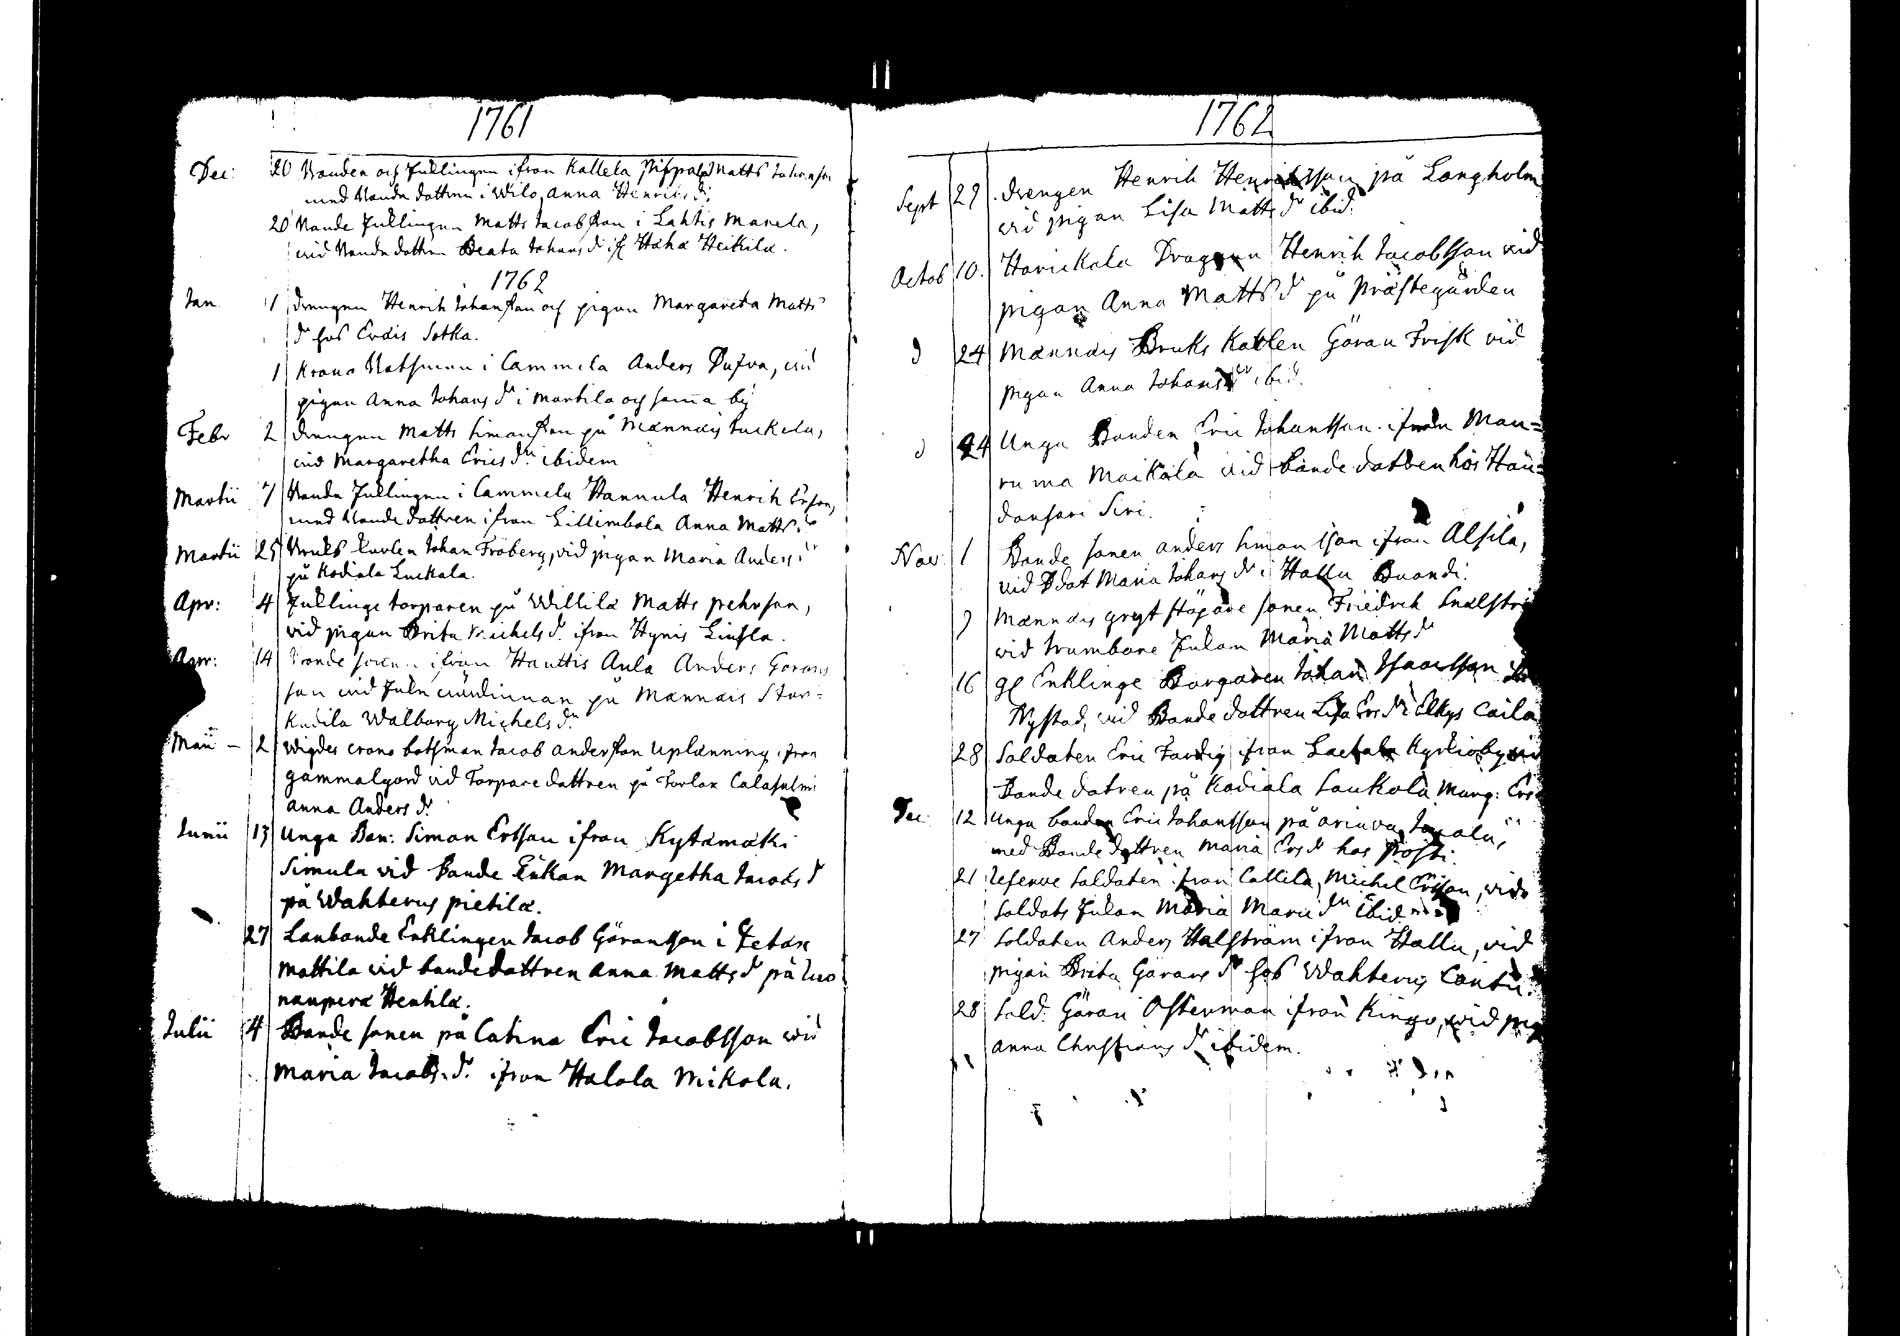 1761
Dec: 20 Bonden och Enklingen ifron Kallela Matts Johansson
med Bonde dottren i Wilo, Anna Henrics dr.
20 Bonde Enklingen Matts Jacobsson i Lahtis Manela,
vid Bonde dottren Beata Johans dr if Haha Heikila.
1762
Jan 1 drengen Henrik Johansson och pigan Margareta Matts
dr hos Erdis Sotka.
1 Krono Botsman i Cammela Anders Dufva, vid
pigan Anna Johans dr i Martila och sama by
Febr 2 drengen Matts Simonsson på Mannais
vid Margaretha Erics dr. ibidem
Martii 7 Bonde Enklingen i Cammela Hannula Henrik Ersson,
med Bonde dottren ifron Lillimbola Anna Matts dr
Martii 25 Bruks Karlen Johan Fröberg, vid pigan Maria Anders dr
på Kodiala Luckala.
Apr: 4 Enklinge torparen på Willila Matts pehrson,
vid pigan Brita Michels dr. ifron Hynis Liusla.
Apr: 14 Bonde sonen ifron Hauttis Aula Anders Görans
son vid på Mannais Stor=
Kudila Walborg Michels dr.
Maii - 2 Wigdes crono botsman Jacob Andersson Uplanning ifron
gammalgord vid Torpare dottren på Torlax
Anna Anders dr.
Junii 13 Unga Bon: Simon Ersson ifron Kytämäki
Simula vid Bonde Enkan Margetha Jacobs d
på Wahterus pietila.
27 Lanbonde Enklingen Jacob Göransson i
Mattila vid bonde dottren Anna Matts dr på Luo
nanperä Hentila.
Julii 4 Bonde sonen på Catina Eric Jacobsson vid
Maria Jacobs. dr. ifron Halola Mikola.
1762
Sept 29 drengen Henrik Henriksson på Langholm
vid pigan Lisa Matts dr ibid.
Octob 10. Dragoun Henrik Jacobsson vid
pigan Anna Matts dr på Prästegården
d 24 Mannais Bruks Karlen Göran Frisk vid
pigan Anna Johans dr ibid.
d 24 Unga Bonden Eric Johansson. ifrån Mau=
ruma Maikala vid bonde dottren hos Hau=
Siri.
Nov 1 Bonde sonen Anders Simonsson ifrån Alsila,
vid Bdot Maria Johans dr i Hallu Buandi.
9 Mannais grytstöpare sonen Friedrich
vid trumbare Enkan Maria Matts dr
16 gl Enklinge Borgaren Johan Isaacsson
Nystad, vid Bonde dottren Lisa Ers dr i Elkys Caila
28 Soldaten Eric Fardig ifrån
Bonde dotren på Kodiala Laukola Marg: Ers
Dec: 12 Unga bonden Eric Johansson på
med Bonde dottren Maria Ers dr hos Posti.
21 Reserve soldaten ifron Callila, Michel Ersson, vid
Soldats Enkan Maria dr ibid.
27 Soldaten Anders Halström ifron Hallu, vid
pigan Brita Görans dr hos Wahterus
28 Sold: Göran Österman ifron Kingo, vid pig
Anna Christians dr ibidem.